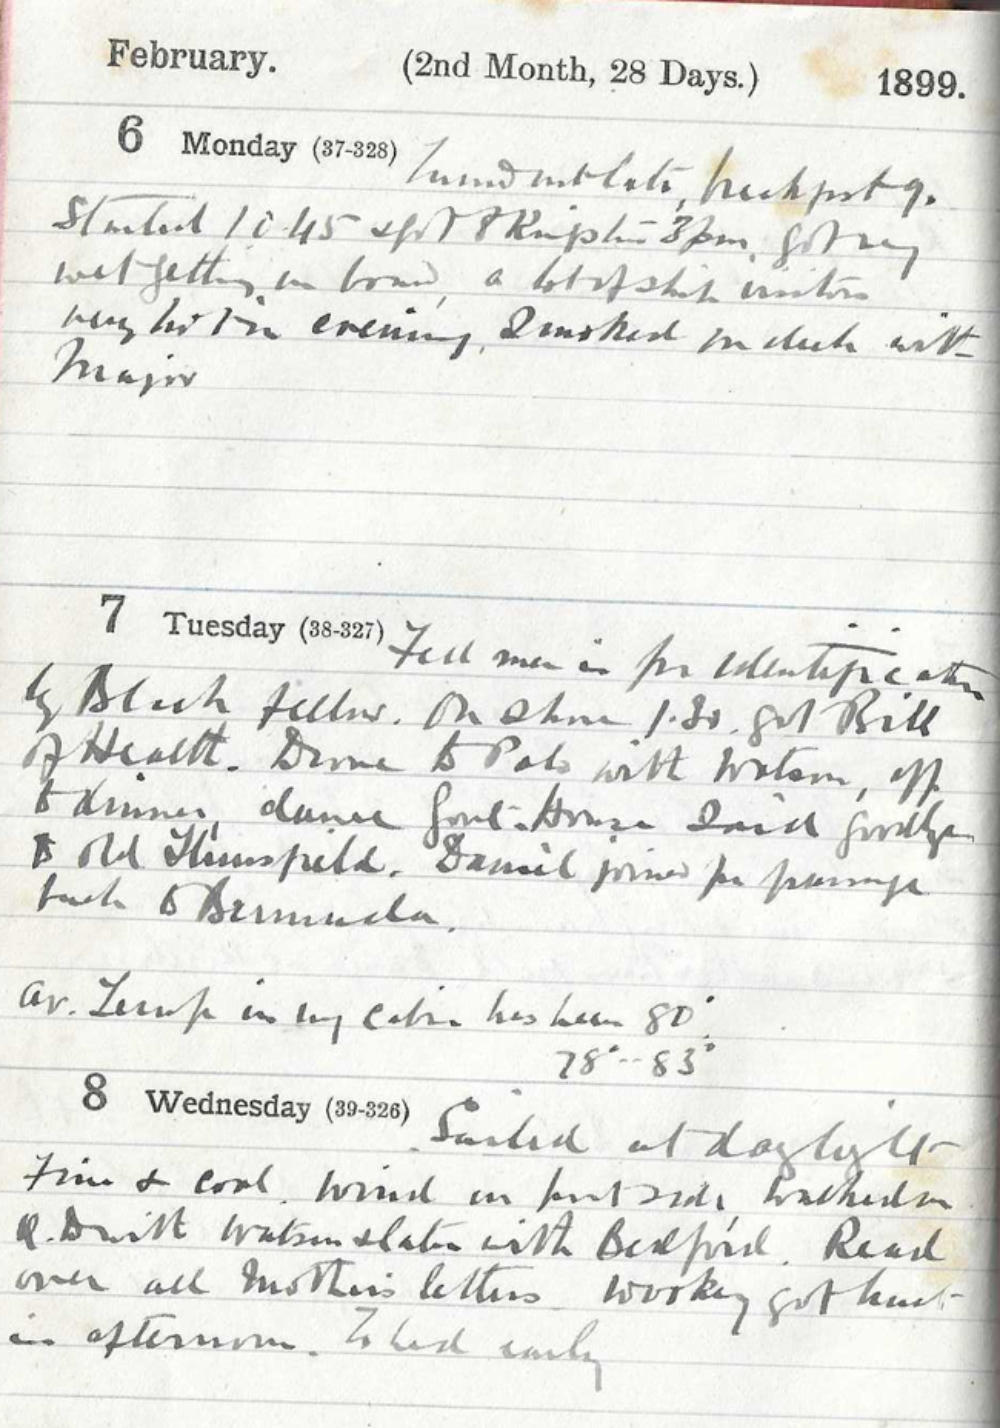 February. (2nd Month, 28 Days.) 1899.
6 Monday (37-328) Turned out late, breakfast 9.
Started 10.45 & got Kingston 3pm, got very
wet getting on board, a lot of ship visitors
very hot in evening, Smoked on deck with
Major
7 Tuesday (38-327) Fell men in for identification
by Black fellow. On shore 1.30. got Bill
of Health. Drove to Polo with Watson, off
to dinner, dance Govt. House Said goodbye
to old . Daniel joined for passage
back to Bermuda.
Av. Temp in my cabin has been 80°.
78°--83°
8 Wednesday (39-326) Sailed at daylight
Fine & cool. Wind on port side, walked on
Q.D with Watson & later with Bedford. Read
over all Mothers letters Wookey got hurt
in afternoon. To bed early